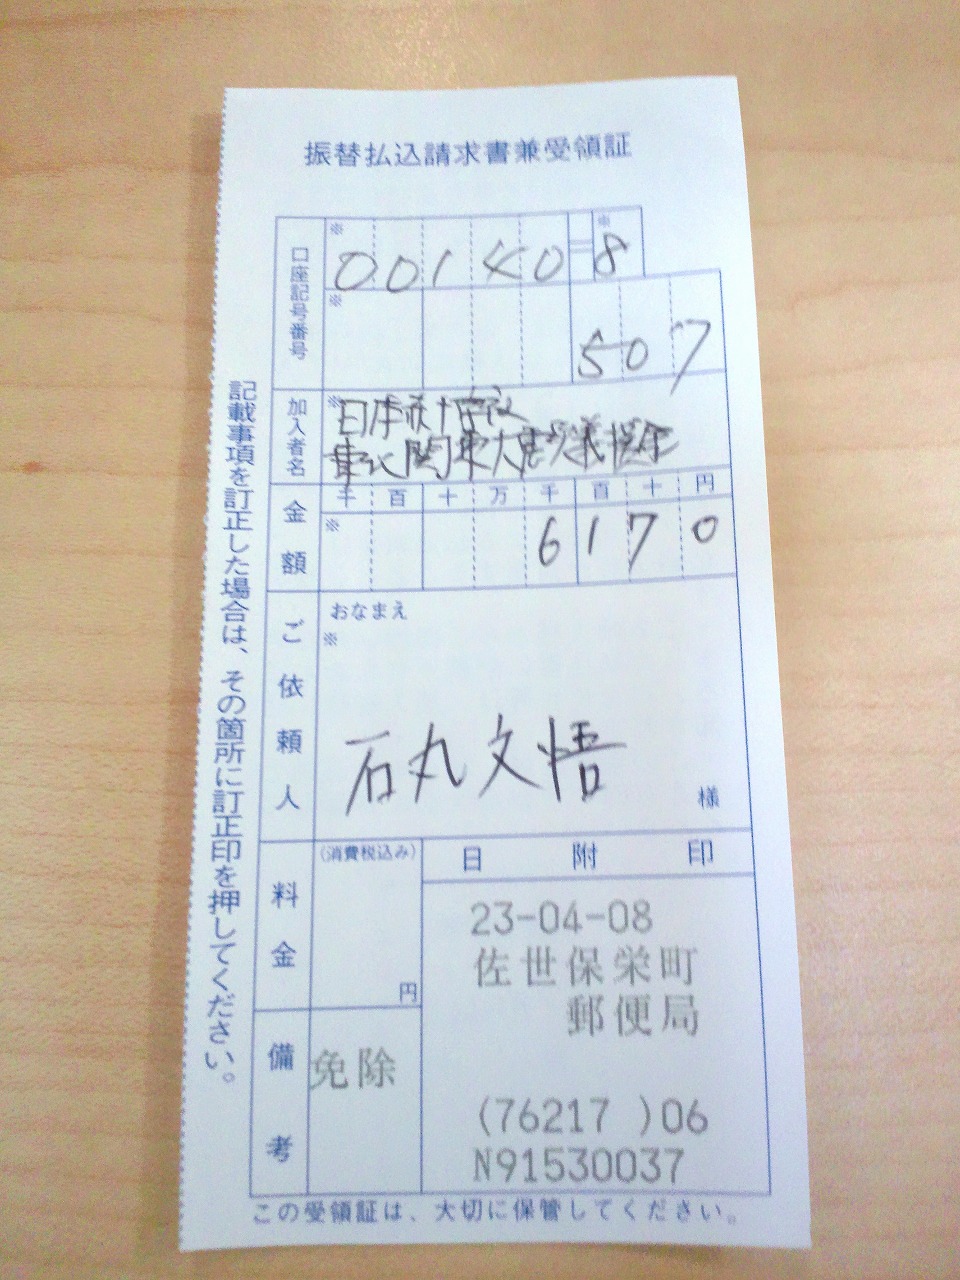 振替払込請求書兼受領証
口座記号番号
※ ※
00140=8
※
507
加入者名
※日本赤十字社
東北関東大震災義援金
金額
千百十万千百十円
※
6170
ご依頼人
おなまえ
※
石丸文悟
様
料金
(消費税込み)
円
日附印
23-04-08
佐世保栄町
郵便局
(76217 )06
N91530037
備考
免除
記載事項を訂正した場合は、その箇所に訂正印を押してください。
この受領証は、大切に保管してください。